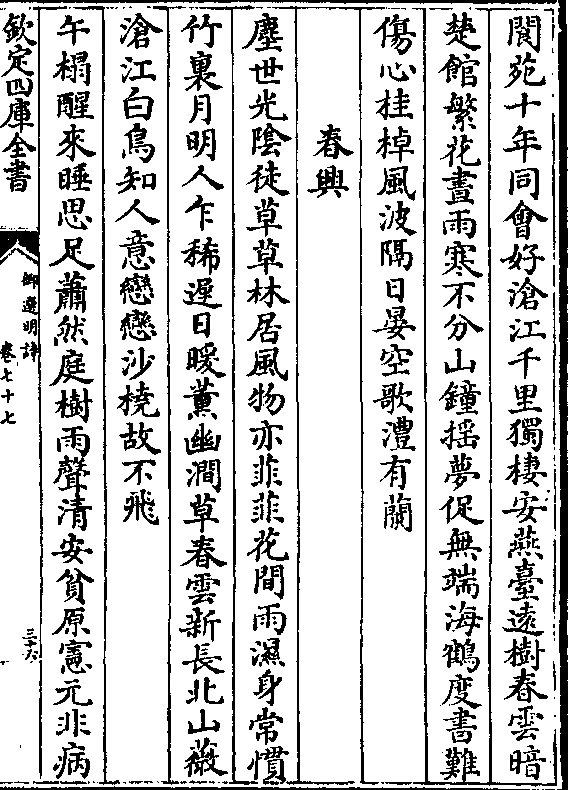 閬苑十年同會好滄江千里獨棲安燕臺遠樹春雲暗
楚館繁花晝雨寒不分山鐘揺夢促無端海鶴度書難
傷心桂棹風波隔日晏空歌澧有蘭
春興
塵世光陰徒草草林居風物亦菲菲花間雨濕身常慣
竹裏月明人乍稀遲日暖薰幽澗草春雲新長北山薇
滄江白鳥知人意戀戀沙橈故不飛
午榻醒來睡思足蕭然庭樹雨聲清安貧原憲元非病
欽定四庫全書
御選明詩
卷七十七
三十六